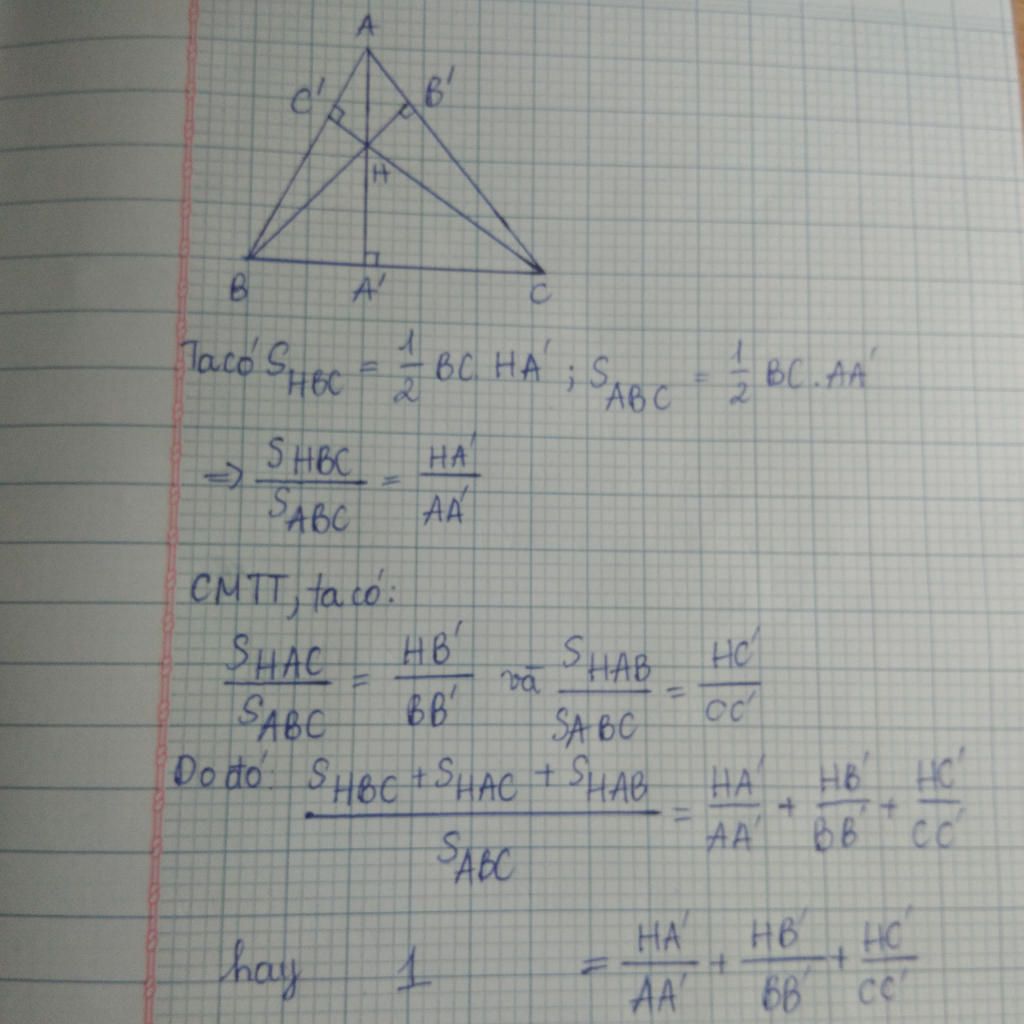 A
C' B'
H
B A' C
Ta có S_HBC = 1/2 BC. HA' ; S_ABC = 1/2 BC.AA'
=> S_HBC/S_ABC = HA'/AA'
CMTT, ta có:
S_HAC/S_ABC = HB'/BB' và S_HAB/S_ABC = HC'/CC'
Do đó: (S_HBC + S_HAC + S_HAB)/S_ABC = HA'/AA' + HB'/BB' + HC'/CC'
hay 1 = HA'/AA' + HB'/BB' + HC'/CC'